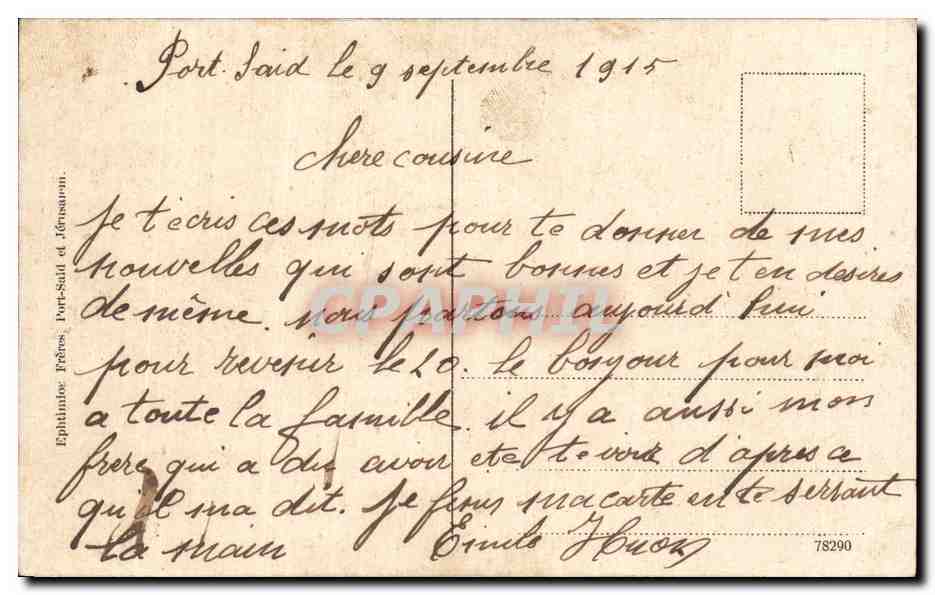 Port. Said le 9 septembre 1915
chere cousine
Je t'ecris ces mots pour te donner de mes
nouvelles qui sont bonnes et je t en desires
de même. nous partons aujourd hui
pour revenir le 20. le bonjour pour moi
a toute la famille. il y a aussi mon
frere qui a du avoir ete te voir d'apres ce
qu'il ma dit. Je finis ma carte en te serrant
la main Emile Huon
Ephtimios Frères, Port-Said et Jérusalem.
78290
CPAPHIL